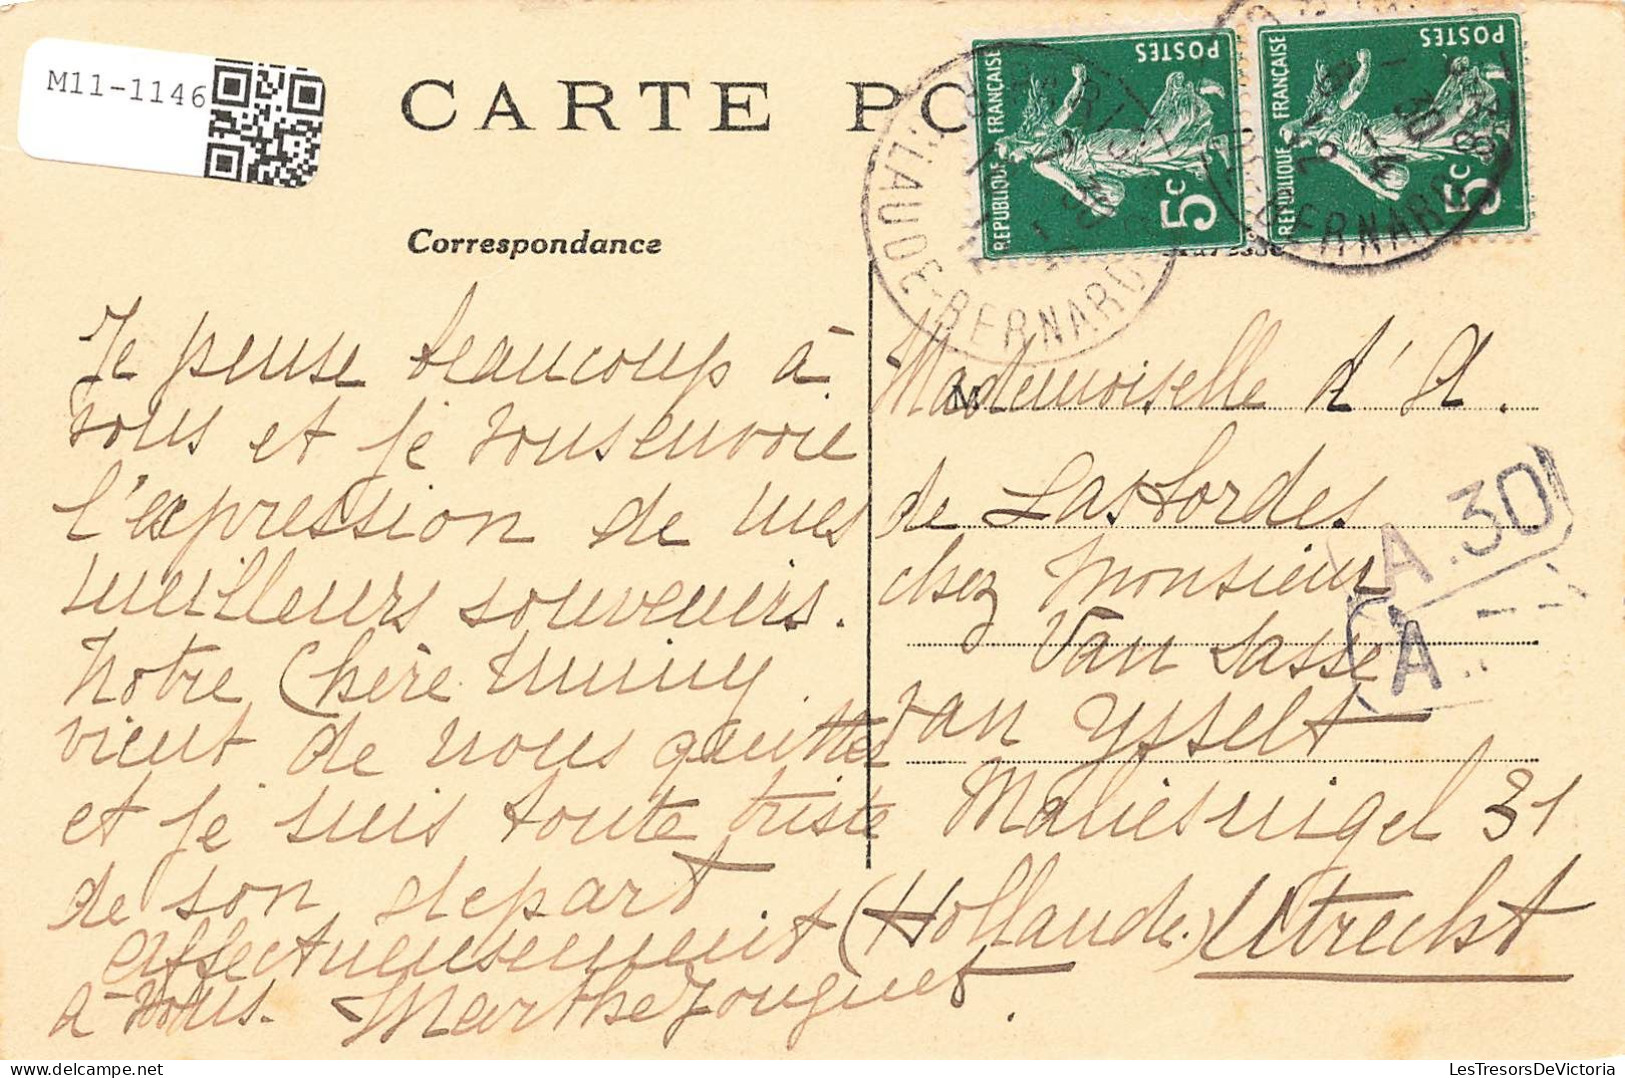 M11-1146
CARTE PO
Correspondance
Je pense beaucoup à
vous et je vous envoie
l'expression de mes
meilleurs souvenirs.
Notre Chère Mimy
vient de nous quitter
et je suis toute triste
de son depart
affectueusement
à vous. Marthe Jouguet.
REPUBLIQUE FRANÇAISE
POSTES
5c
REPUBLIQUE FRANÇAISE
POSTES
5c
PARIS
R. CLAUDE-BERNARD
BERNARD
M
Mademoiselle d'A.
de Lastordes
chez Monsieur
Van Sasse
van Ysselt
Maliesingel 31
(Hollande.) Utrecht
A.30
A
LesTresorsDeVictoria